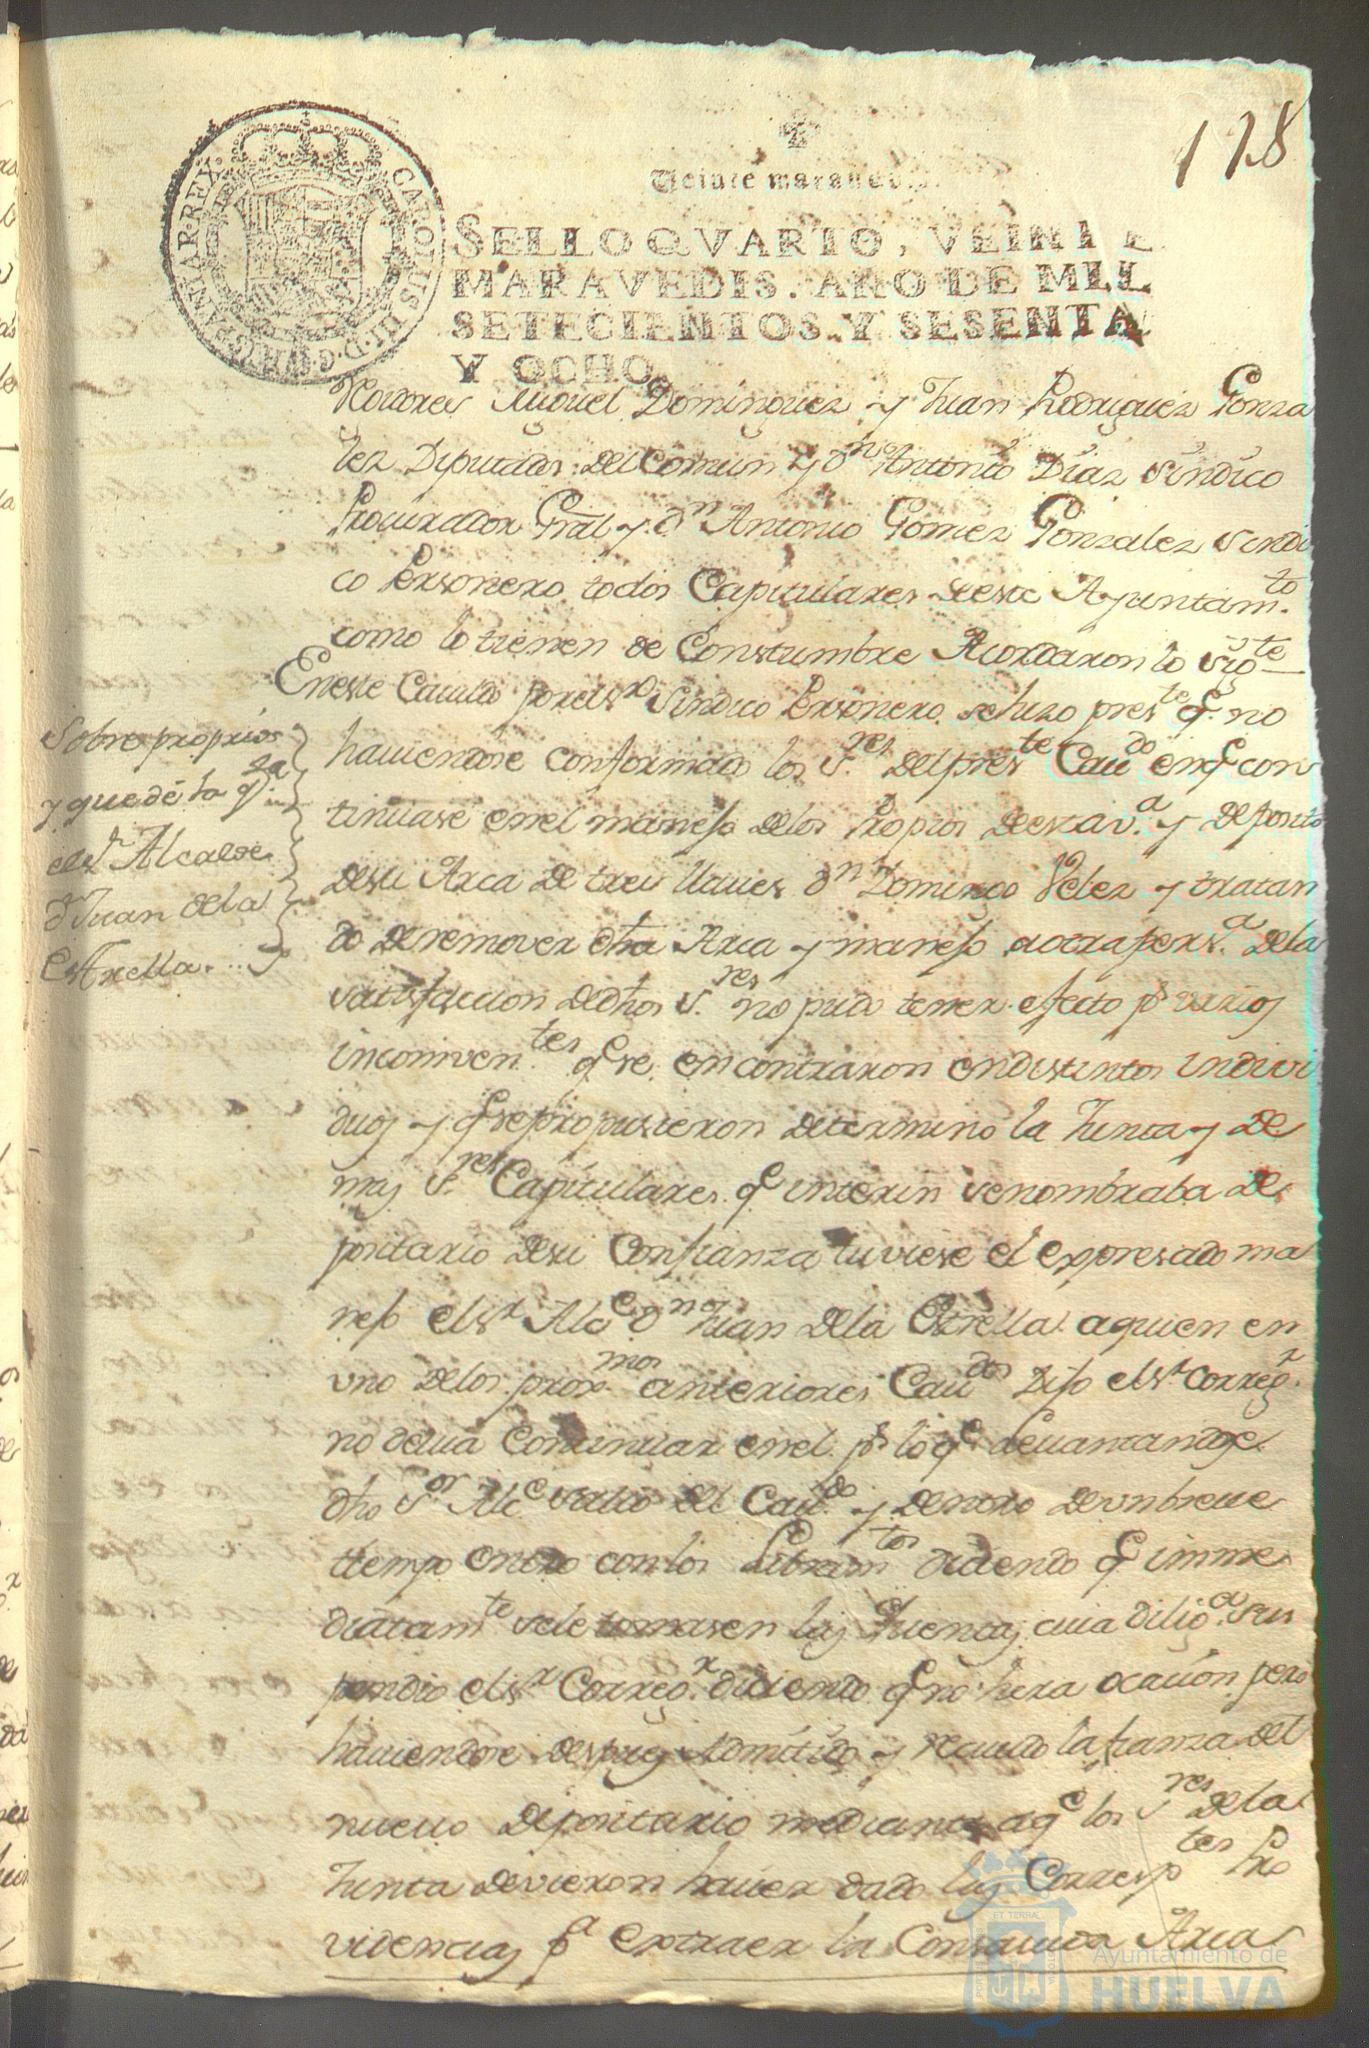 178
Veinte maravedis.
SELLO QVARTO, VEINTE
MARAVEDIS. AÑO DE MIL
SETECIENTOS Y SESENTA
Y OCHO.
CAROLUS III D. G. HISPANIAR. REX.
Miguel Dominguez y Juan Rodriguez Gonza
lez Diputados del Comun y Dn Antonio Diaz Sindico
Procurador Gral y Dn Antonio Gomez Gonzalez Sindi
co Personero todos Capitulares deeste Ayuntamto
como lo tienen de Constumbre Acordaron lo sigte
Sobre proprios
y quede ha qn
el sr Alcalde
Dn Juan dela
Estrella
En este Cauildo por el sr Sindico Personero se hizo preste qe no
hauiendose conformado los sres del preste Caudo en qe con
tinuase en el manejo delos Propios deesta va y deposito
desu Arca de tres llaues Dn Domingo Velez y tratan
do deremover dha Arca y manejo a otra persa dela
satisfaccion dedhos sres no pudo tener efecto pr varios
inconventes qe se encontraron en distintos indivi
duos y qe se propusieron determinó la Junta y De
mas sres Capitulares qe interin senombraba De
positario desu Confianza tuviese el expresado ma
nejo el sr Alce Dn Juan dela Estrella aquien en
uno delos proxmos anteriores Caudos Dijo el sr Corregr
no deuia Continuar en el pr lo qe leuantandose
dho sor Alce salio del Caudo y dentro de un breue
tiempo entro con los Libramtos diciendo qe imme
diatamte sele tomasen las Quentas cuia diliga sus
pendio el sr Corregr diciendo qe no hera ocacion pero
hauiendose despues Admitido y reciuido la fianza del
nueuo depositario mediante aqe los sres dela
Junta devieron hauer dado las Corresptes Pro
videncias pa extraer la Consauida Arca
ET TERRAE
Ayuntamiento de
HUELVA